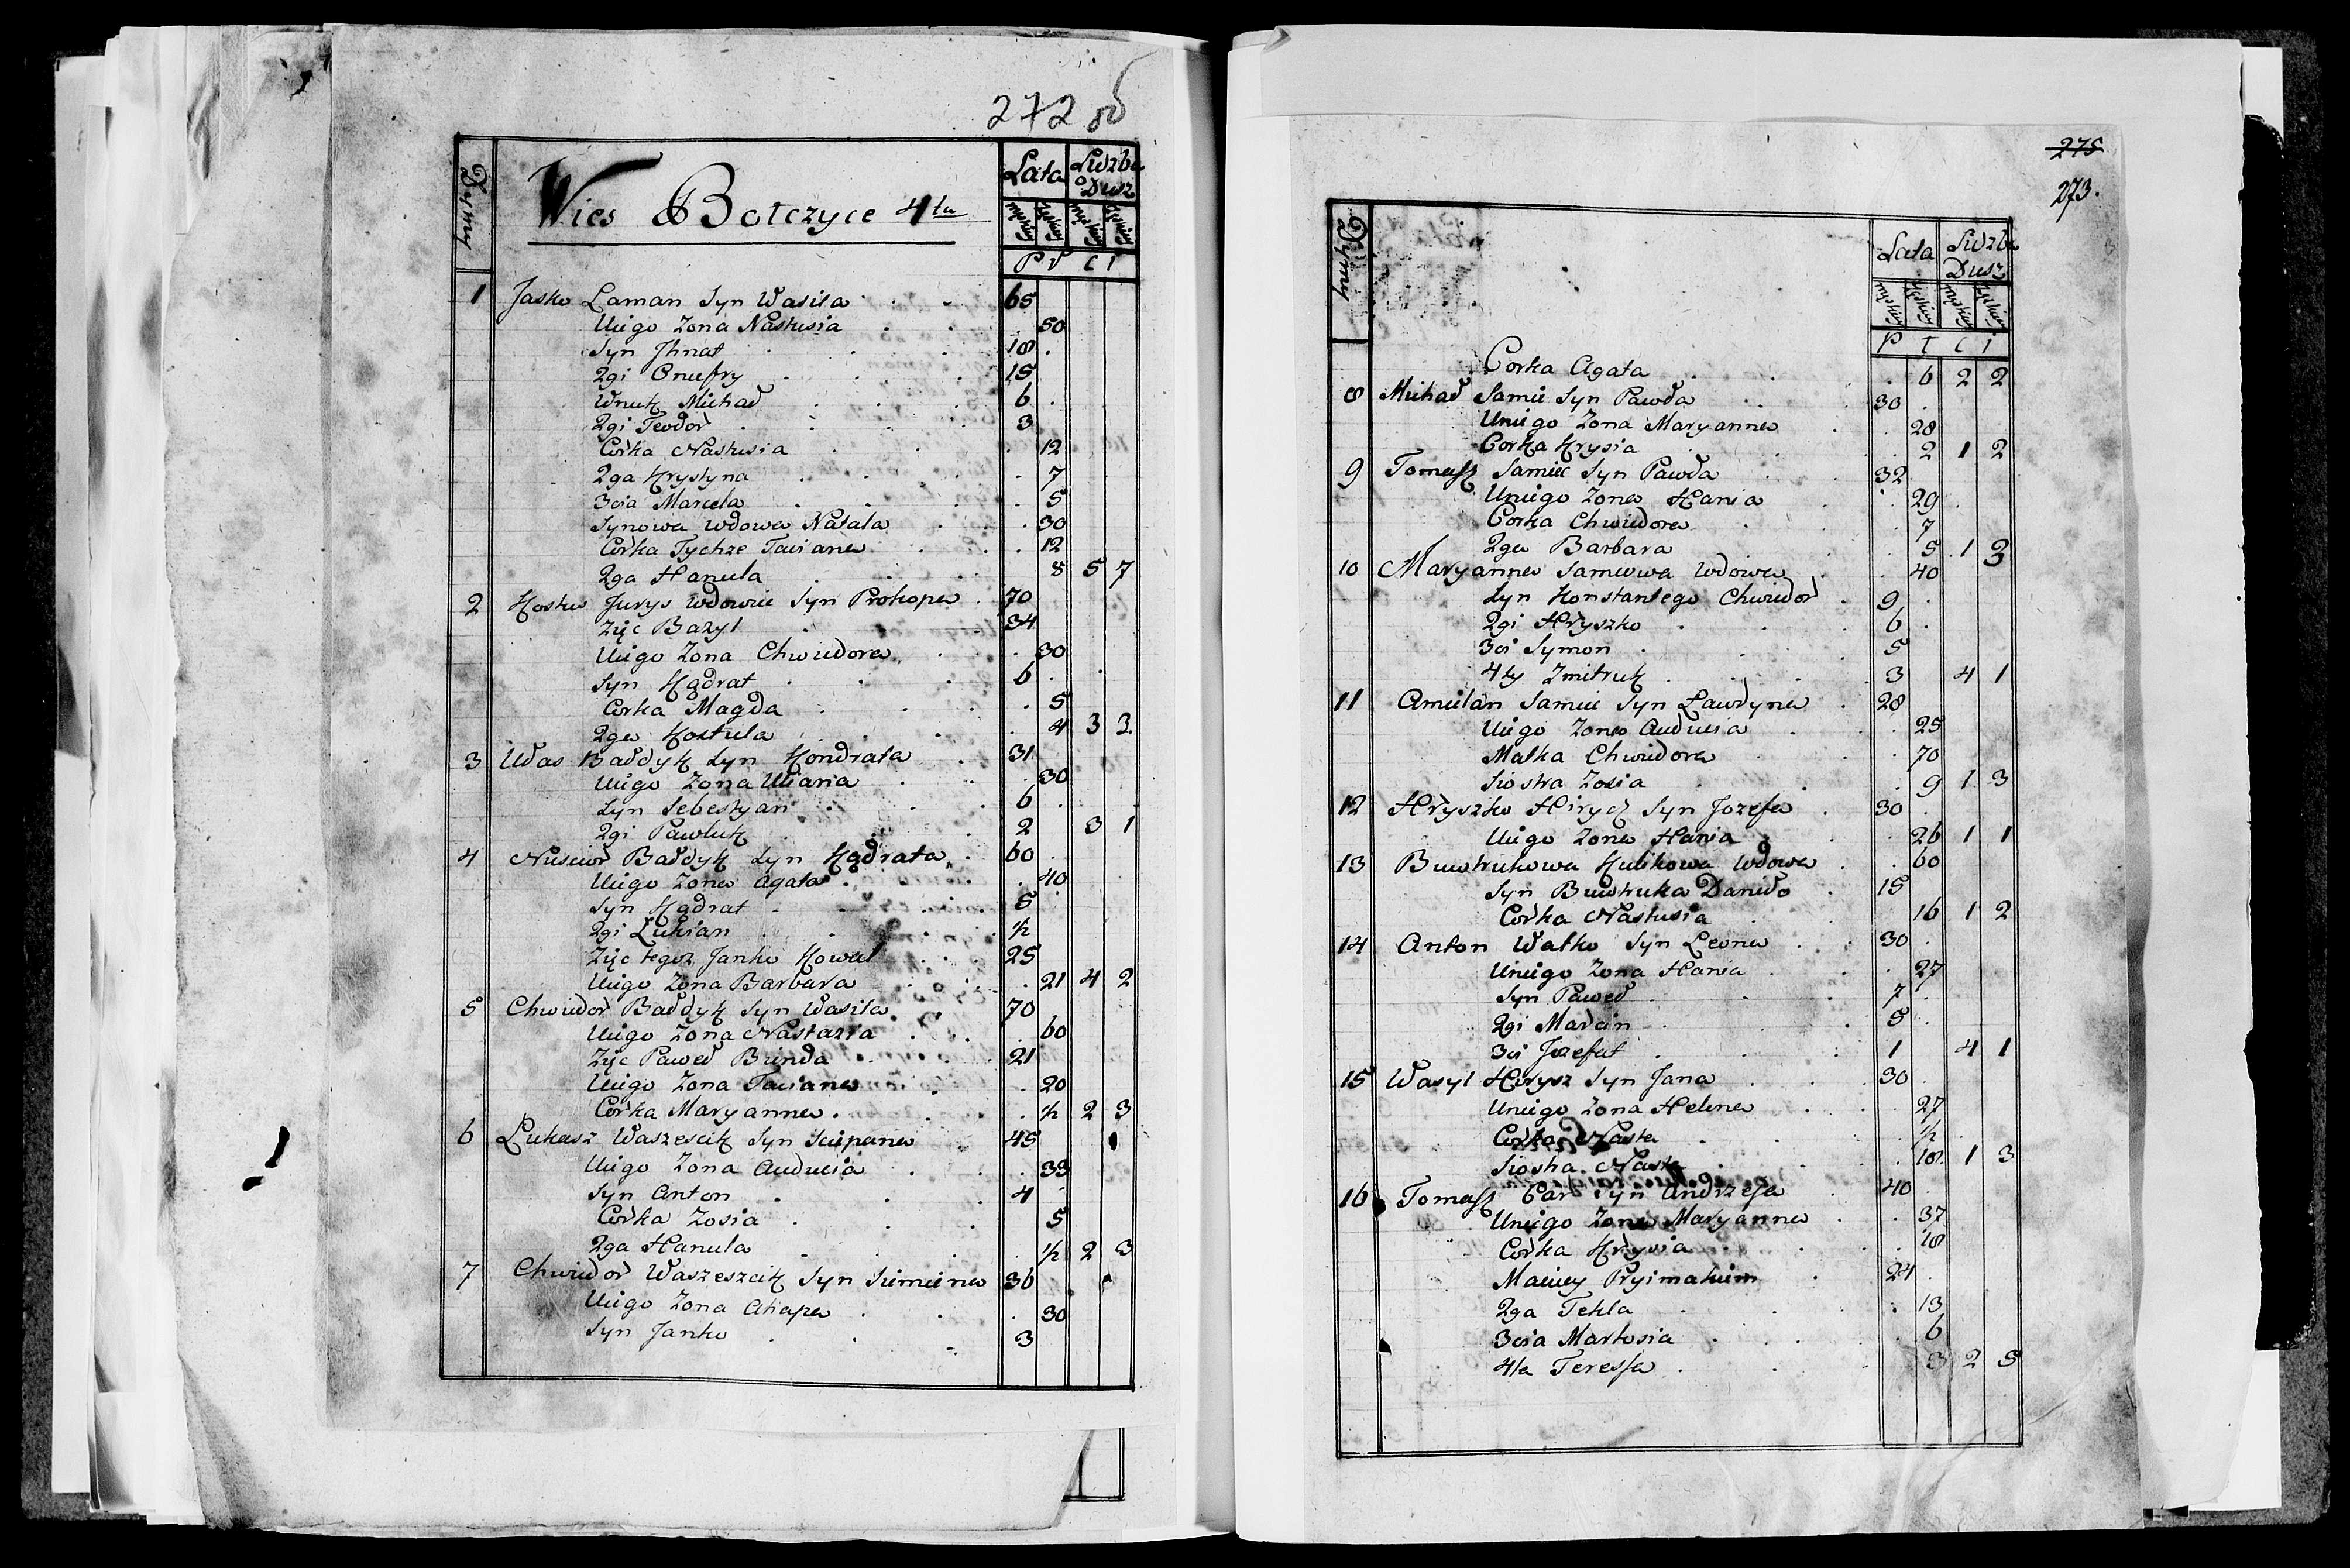 272 об
Dymy
Wies Bołczyce 4ta
Lata
Liczba Dusz
męskiey żeńskiey męskiey żeńskiey
1 Jasko Laman Syn Wasila 65
Uiego Zona Nastusia 50
Syn Jhnat 18
2gi Onuefry 15
Wnuk Michał 6
2gi Teodor 3
Corka Nastusia 12
2ga Krystyna 7
3cia Marcela 5
Synowa Wdowa Natala 30
Corka Tychze Taciana 12
2ga Hanula 8 5 7
2 Kostus Jurys Wdowiec Syn Prokopa 70
Zięc Bazyl 34
Uiego Zona Chwiedora 30
Syn Kądrat 6
Corka Magda 5
2ga Kostula 4 3 3
3 Włas Bałdyk Syn Kondrata 31
Uiego Zona Uliana 30
Syn Sebestyan 6
2gi Pawluk 2 3 1
4 Bałdyk Syn Kądrata 60
Uiego Zona Agata 40
Syn Kądrat 5
2gi Lukian ½
Zięc tegoz Janko Kowal 25
Uiego Zona Barbara 21 4 2
5 Chwiedor Bałdyk Syn Wasila 70
Uiego Zona Nastazia 60
Zięc Paweł Brinda 21
Uiego Zona Taciana 20
Corka Maryanna ½ 2 3
6 Lukasz Waszescik Syn Sciepana 45
Uiego Zona Auducia 33
Syn Anton 4
Corka Zosia 5
2ga Hanula ½ 2 3
7 Chwiedor Waszeszcik Syn Siemiena 36
Uiego Zona Ahapa 30
Syn Janko 3
275
273.
Dymy
Lata
Liczba Dusz
męskiey żeńskiey męskiey żeńskiey
Corka Agata 6 2 2
8 Michał Samiec Syn Pawła 30
Uniego Zona Maryanna 28
Corka Krysia 2 1 2
9 Tomasz Samiec Syn Pawła 32
Uniego Zona Hania 29
Corka Chwiedora 7
2ga Barbara 5 1 3
10 Maryanna Samcowa Wdowa 40
Syn Konstantego Chwiedor 9
2gi Hryszko 6
3ci Symon 5
4ty Zmitruk 3 4 1
11 Amilan Samiec Syn Ławdyna 28
Uiego Zona Auducia 25
Matka Chwiedora 70
Siostra Zosia 9 1 3
12 Hryszko Hirycz Syn Jozefa 30
Uiego Zona Hania 26 1 1
13 Kulikowa Wdowa 60
Syn Daniło 15
Corka Nastusia 16 1 2
14 Anton Watko Syn Leona 30
Uniego Zona Hania 27
Syn Paweł 7
2gi Marcin 5
3ci Jozefat 1 4 1
15 Wasyl Hirysz Syn Jana 30
Uniego Zona Helena 27
Corka Nasta ½
Siostra Nasta 18 1 3
16 Tomasz Car Syn Andrzeja 40
Uniego Zona Maryanna 37
Corka Krysia 18
Maciey Pryimakiem 24
2ga Tekla 13
3cia Martosia 6
4ta Teressa 3 2 5